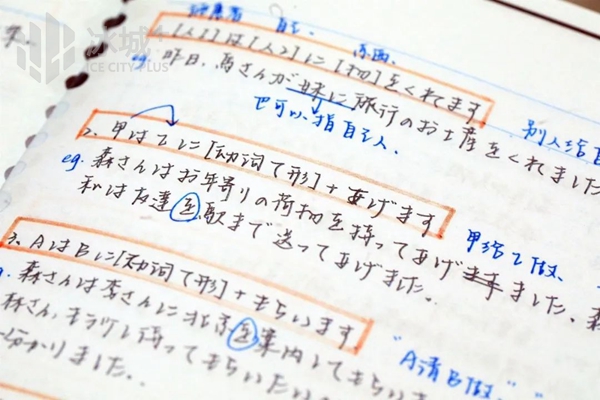 冰城+
ICE CITY PLUS
自己 东西
[人1]は[人2]に[物]をくれます
eg: 昨日、馬さんが妹に旅行のお土産をくれました
也可以指自己人. 别人给自
2. 甲は乙に[动词て形]+あげます.
eg. 森さんはお年寄りの荷物を持ってあげました、森
私は友達を駅まで送ってあげました. 甲给乙做、
3. AはBに[动词て形]+もらいます
森さんは李さんに北京を案内してもらいま
林さん,もう少し待ってもらいたい "A请B做"
分かりました.